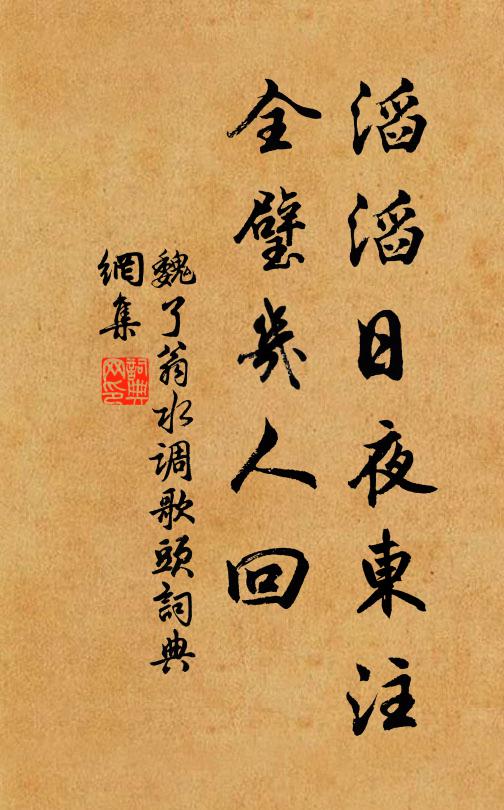 滔滔日夜東注
全璧幾人回
魏了翁水调歌頭詞典
網集
詞典
网印